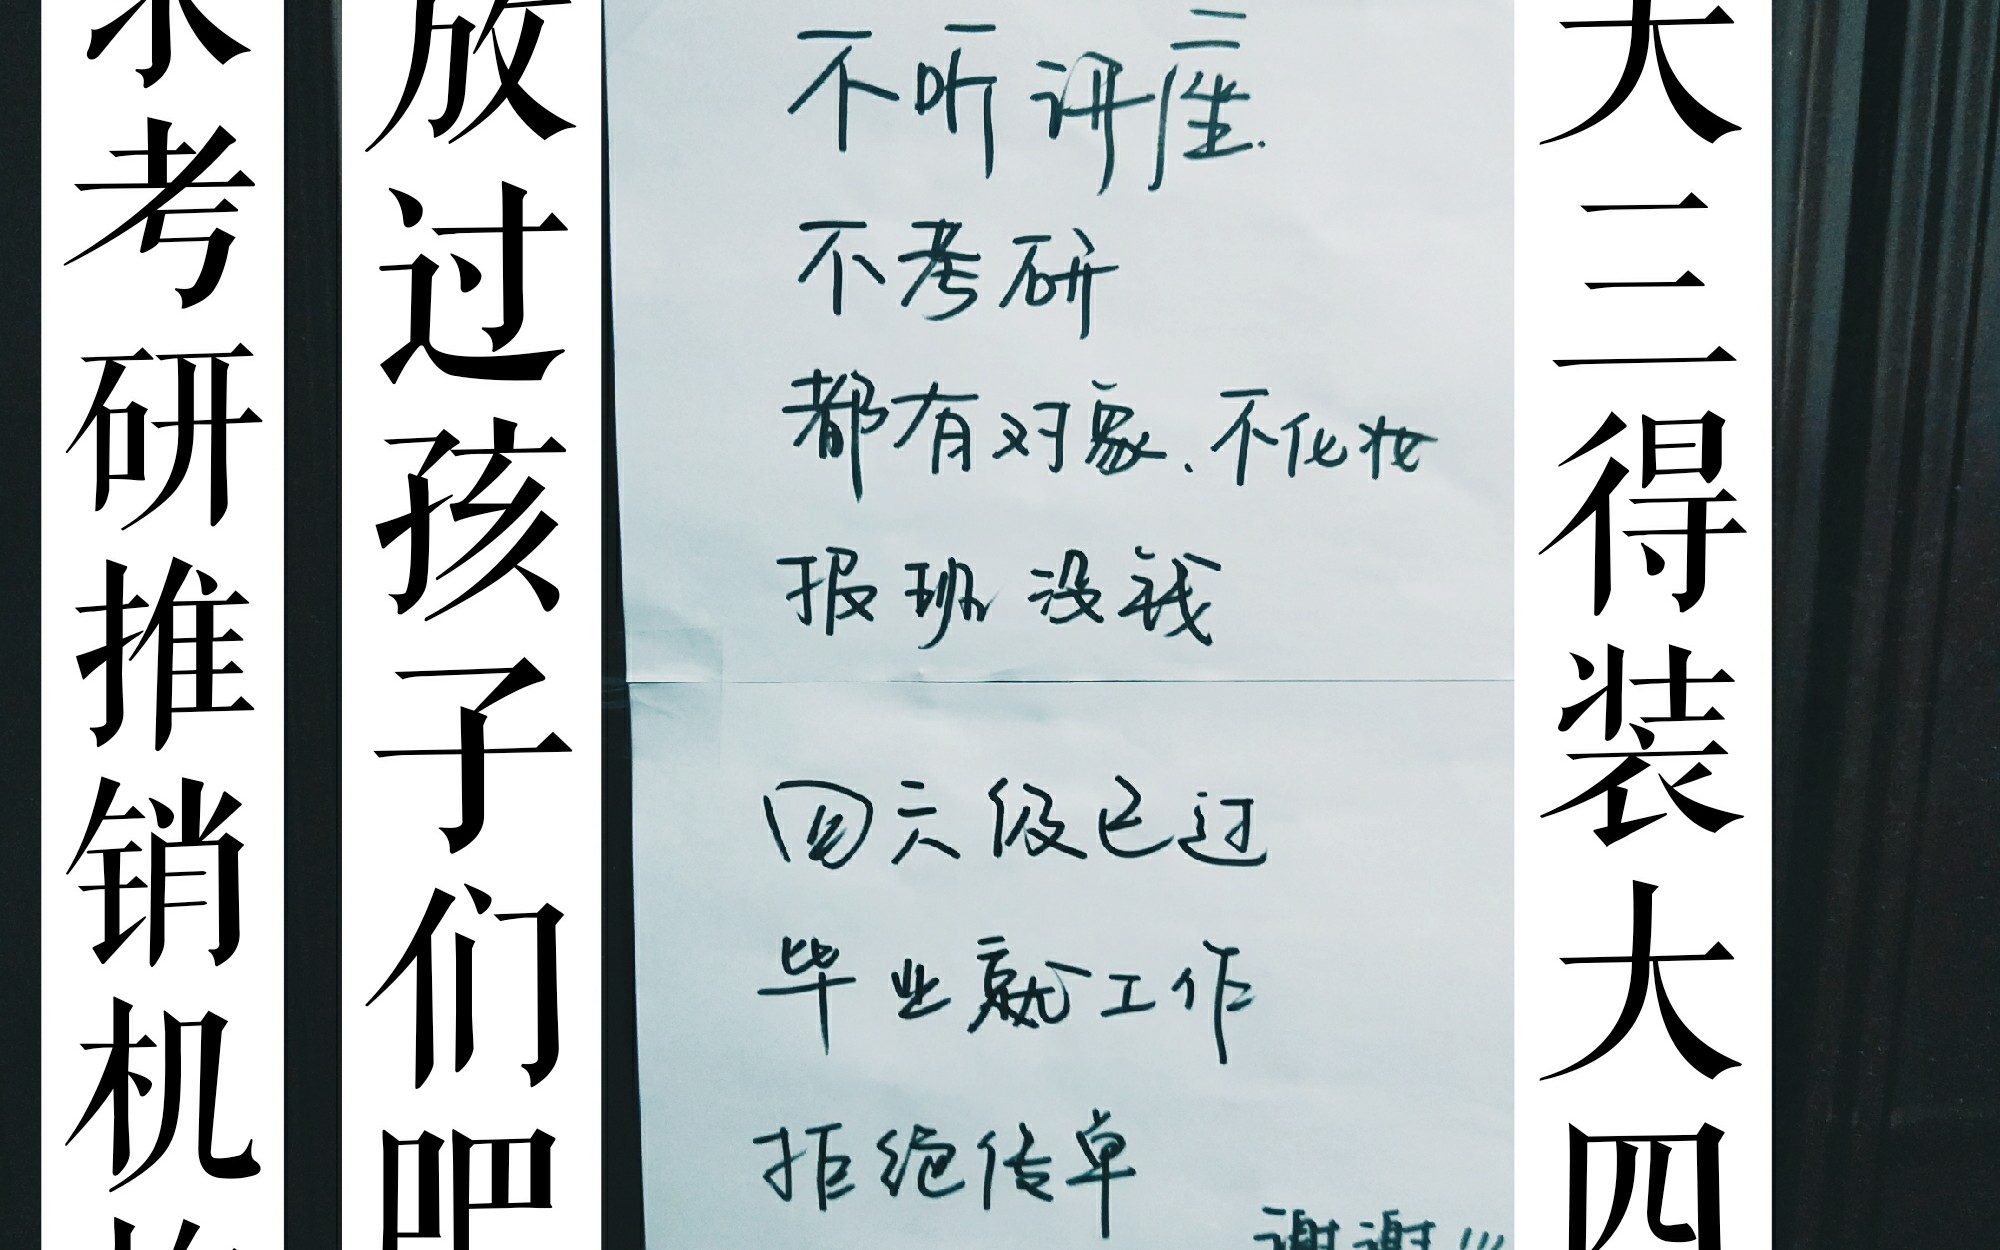 求考研推销机构
放过孩子们吧
不听讲座.
不考研
都有对象、不化妆
报班没钱
四六级已过
毕业就工作
拒绝传单
谢谢!!!
大三得装大四